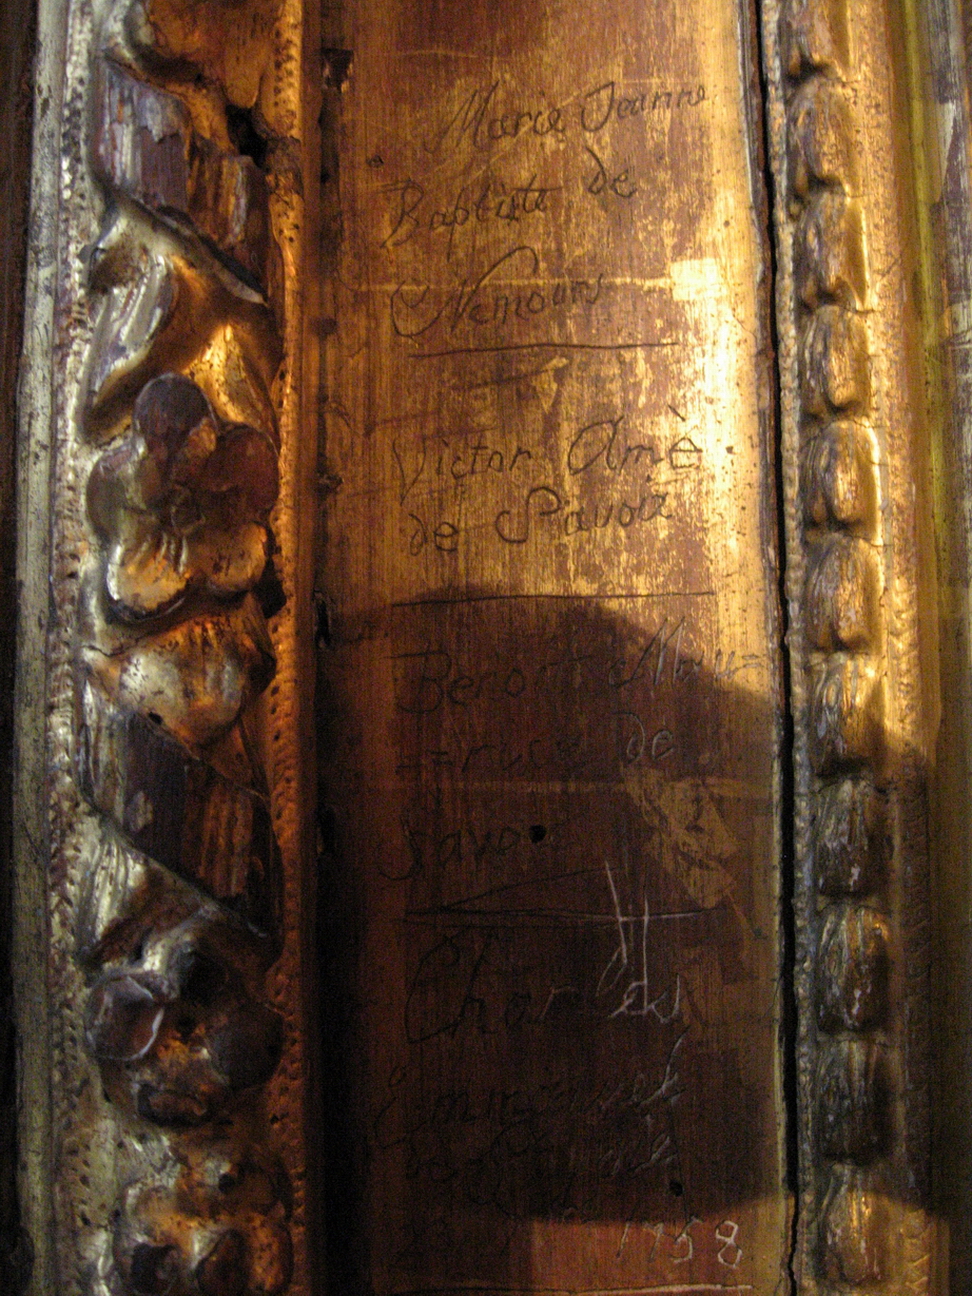 Marie Jeanne
Baptiste de
Nemours
Victor Amè
de Savoie
Benoit Mau=
=rice de
Savoie
Charles
Emmanuel
de Savoie
1758